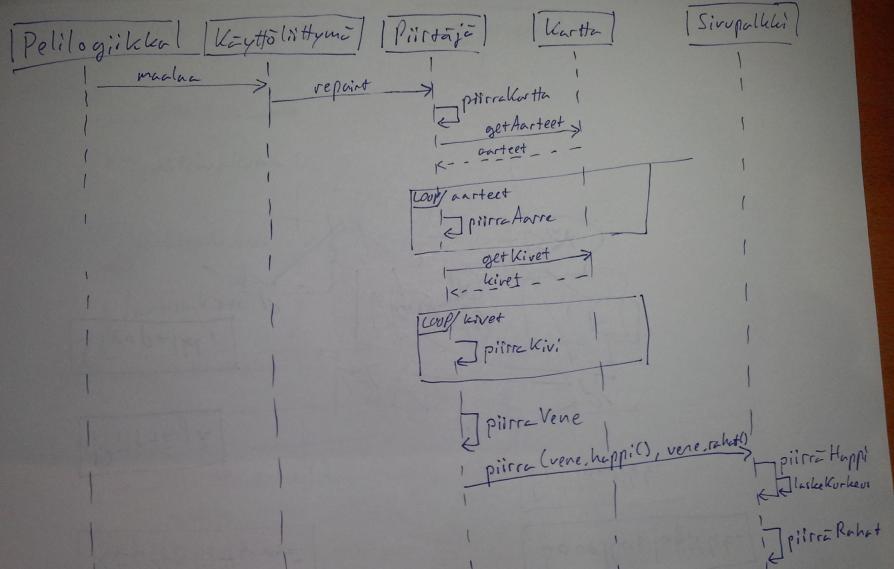 Pelilogiikka Käyttöliittymä Piirtäjä Kartta Sivupalkki
maalaa
repaint
piirraKartta
getAarteet
aarteet
LOOP aarteet
piirraAarre
getKivet
kivet
LOOP kivet
piirraKivi
piirraVene
piirra(vene.happi(), vene.rahat())
piirräHappi
laskeKorkeus
piirräRahat